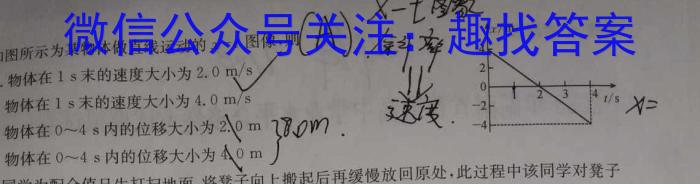 微信公众号关注：趣找答案
x-t图像
如图所示为某物体做直线运动的 图像,则
物体在 1 s 末的速度大小为 2.0 m/s
物体在 1 s 末的速度大小为 4.0 m/s
物体在 0～4 s 内的位移大小为 2.0 m
物体在 0～4 s 内的位移大小为 4.0 m
8.0m.
斜率
速度.
4
2
0
-2
-4
2 3 4 t/s
x=
同学为配合值日生打扫地面,将凳子向上搬起后再缓慢放回原处,此过程中该同学对凳子